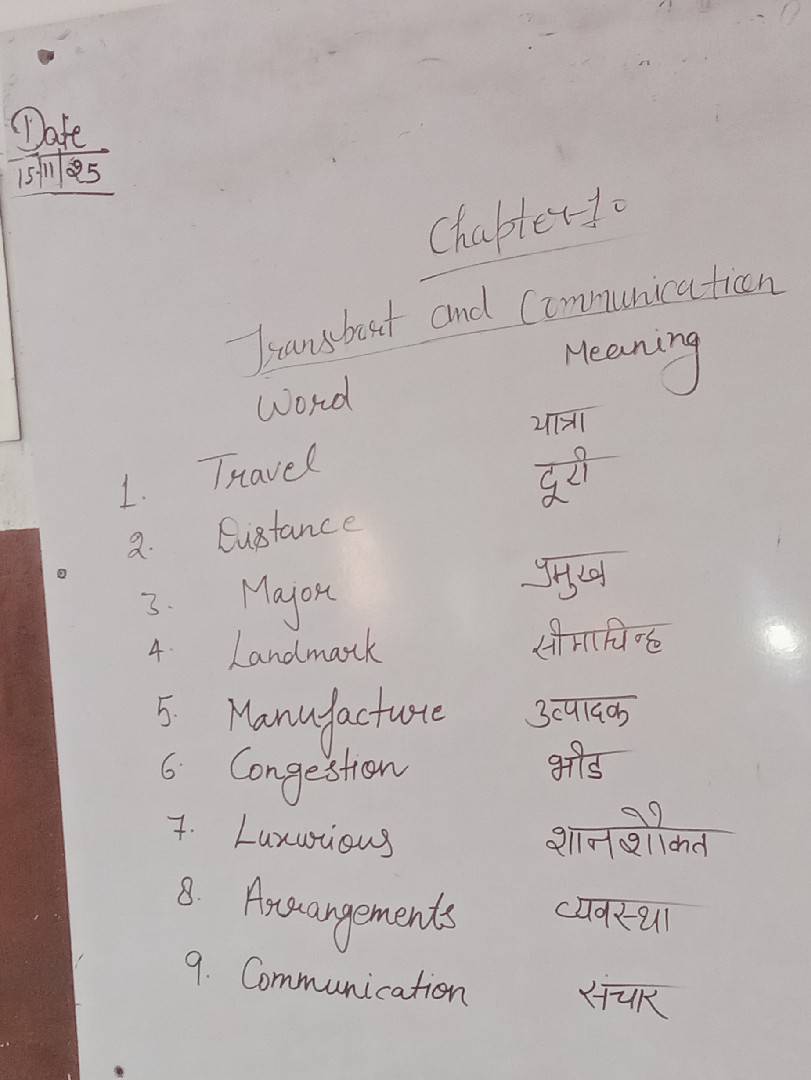 Date
15/11/25
Chapter-10
Transport and Communication
Word Meaning
1. Travel यात्रा
2. Distance दूरी
3. Major प्रमुख
4. Landmark सीमाचिन्ह
5. Manufacture उत्पादक
6. Congestion भीड
7. Luxurious शानशौकत
8. Arrangements व्यवस्था
9. Communication संचार